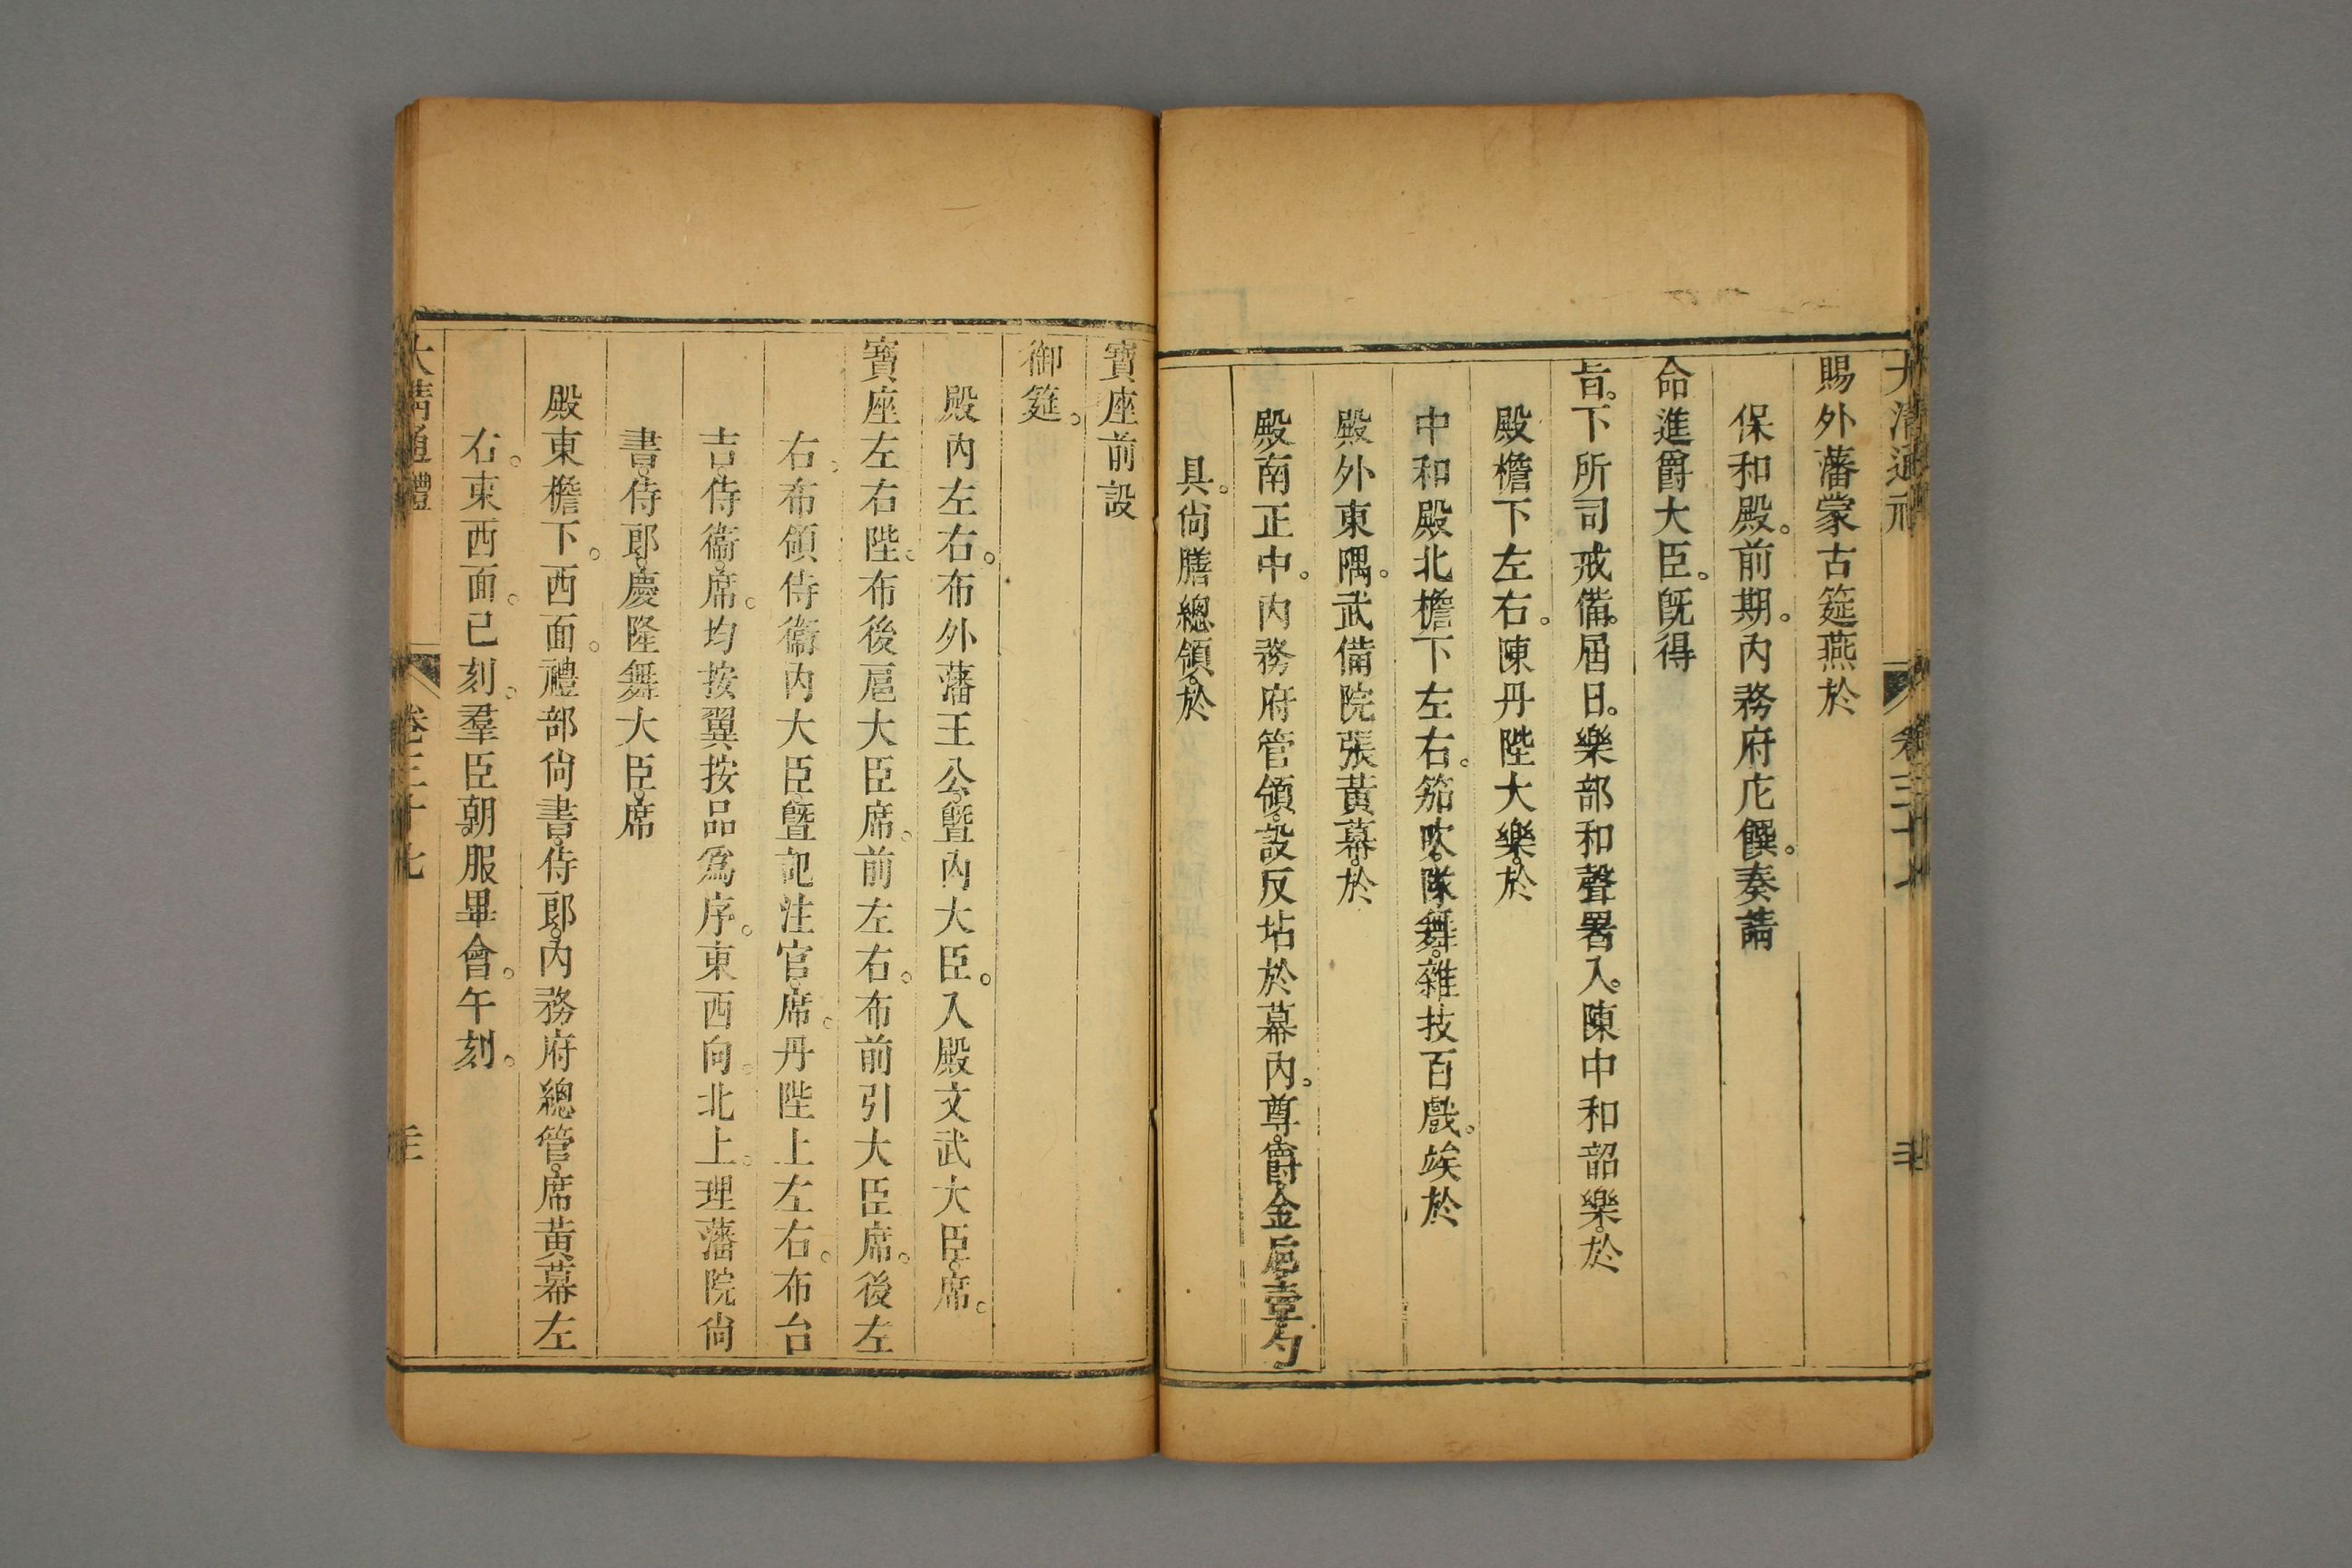 賜外藩蒙古筵燕於
保和殿。前期。內務府庀饌。奏請
命進爵大臣。旣得
旨。下所司戒備。屆日。樂部和聲署入。陳中和韶樂。於
殿檐下左右。陳丹陛大樂。於
中和殿北檐下左右。笳吹。隊舞。雜技百戲。竢於
殿外東隅。武備院張黃幕。於
殿南正中。內務府管領。設反坫於幕內。尊。爵。金卮。壺。勺
具。尙膳總領。於
寶座前設
御筵。
殿內左右。布外藩王公。曁內大臣。入殿文武大臣。席。
寶座左右陛。布後扈大臣席。前左右。布前引大臣席。後左
右。布領侍衞內大臣。曁記注官。席。丹陛上左右。布台
吉。侍衞。席。均按翼按品爲序。東西向。北上。理藩院尙
書。侍郞。慶隆舞大臣。席
殿東檐下。西面。禮部尙書。侍郞。內務府總管。席黃幕左
右。東西面。已刻。羣臣朝服畢會。午刻。
大淸通禮 卷三十七